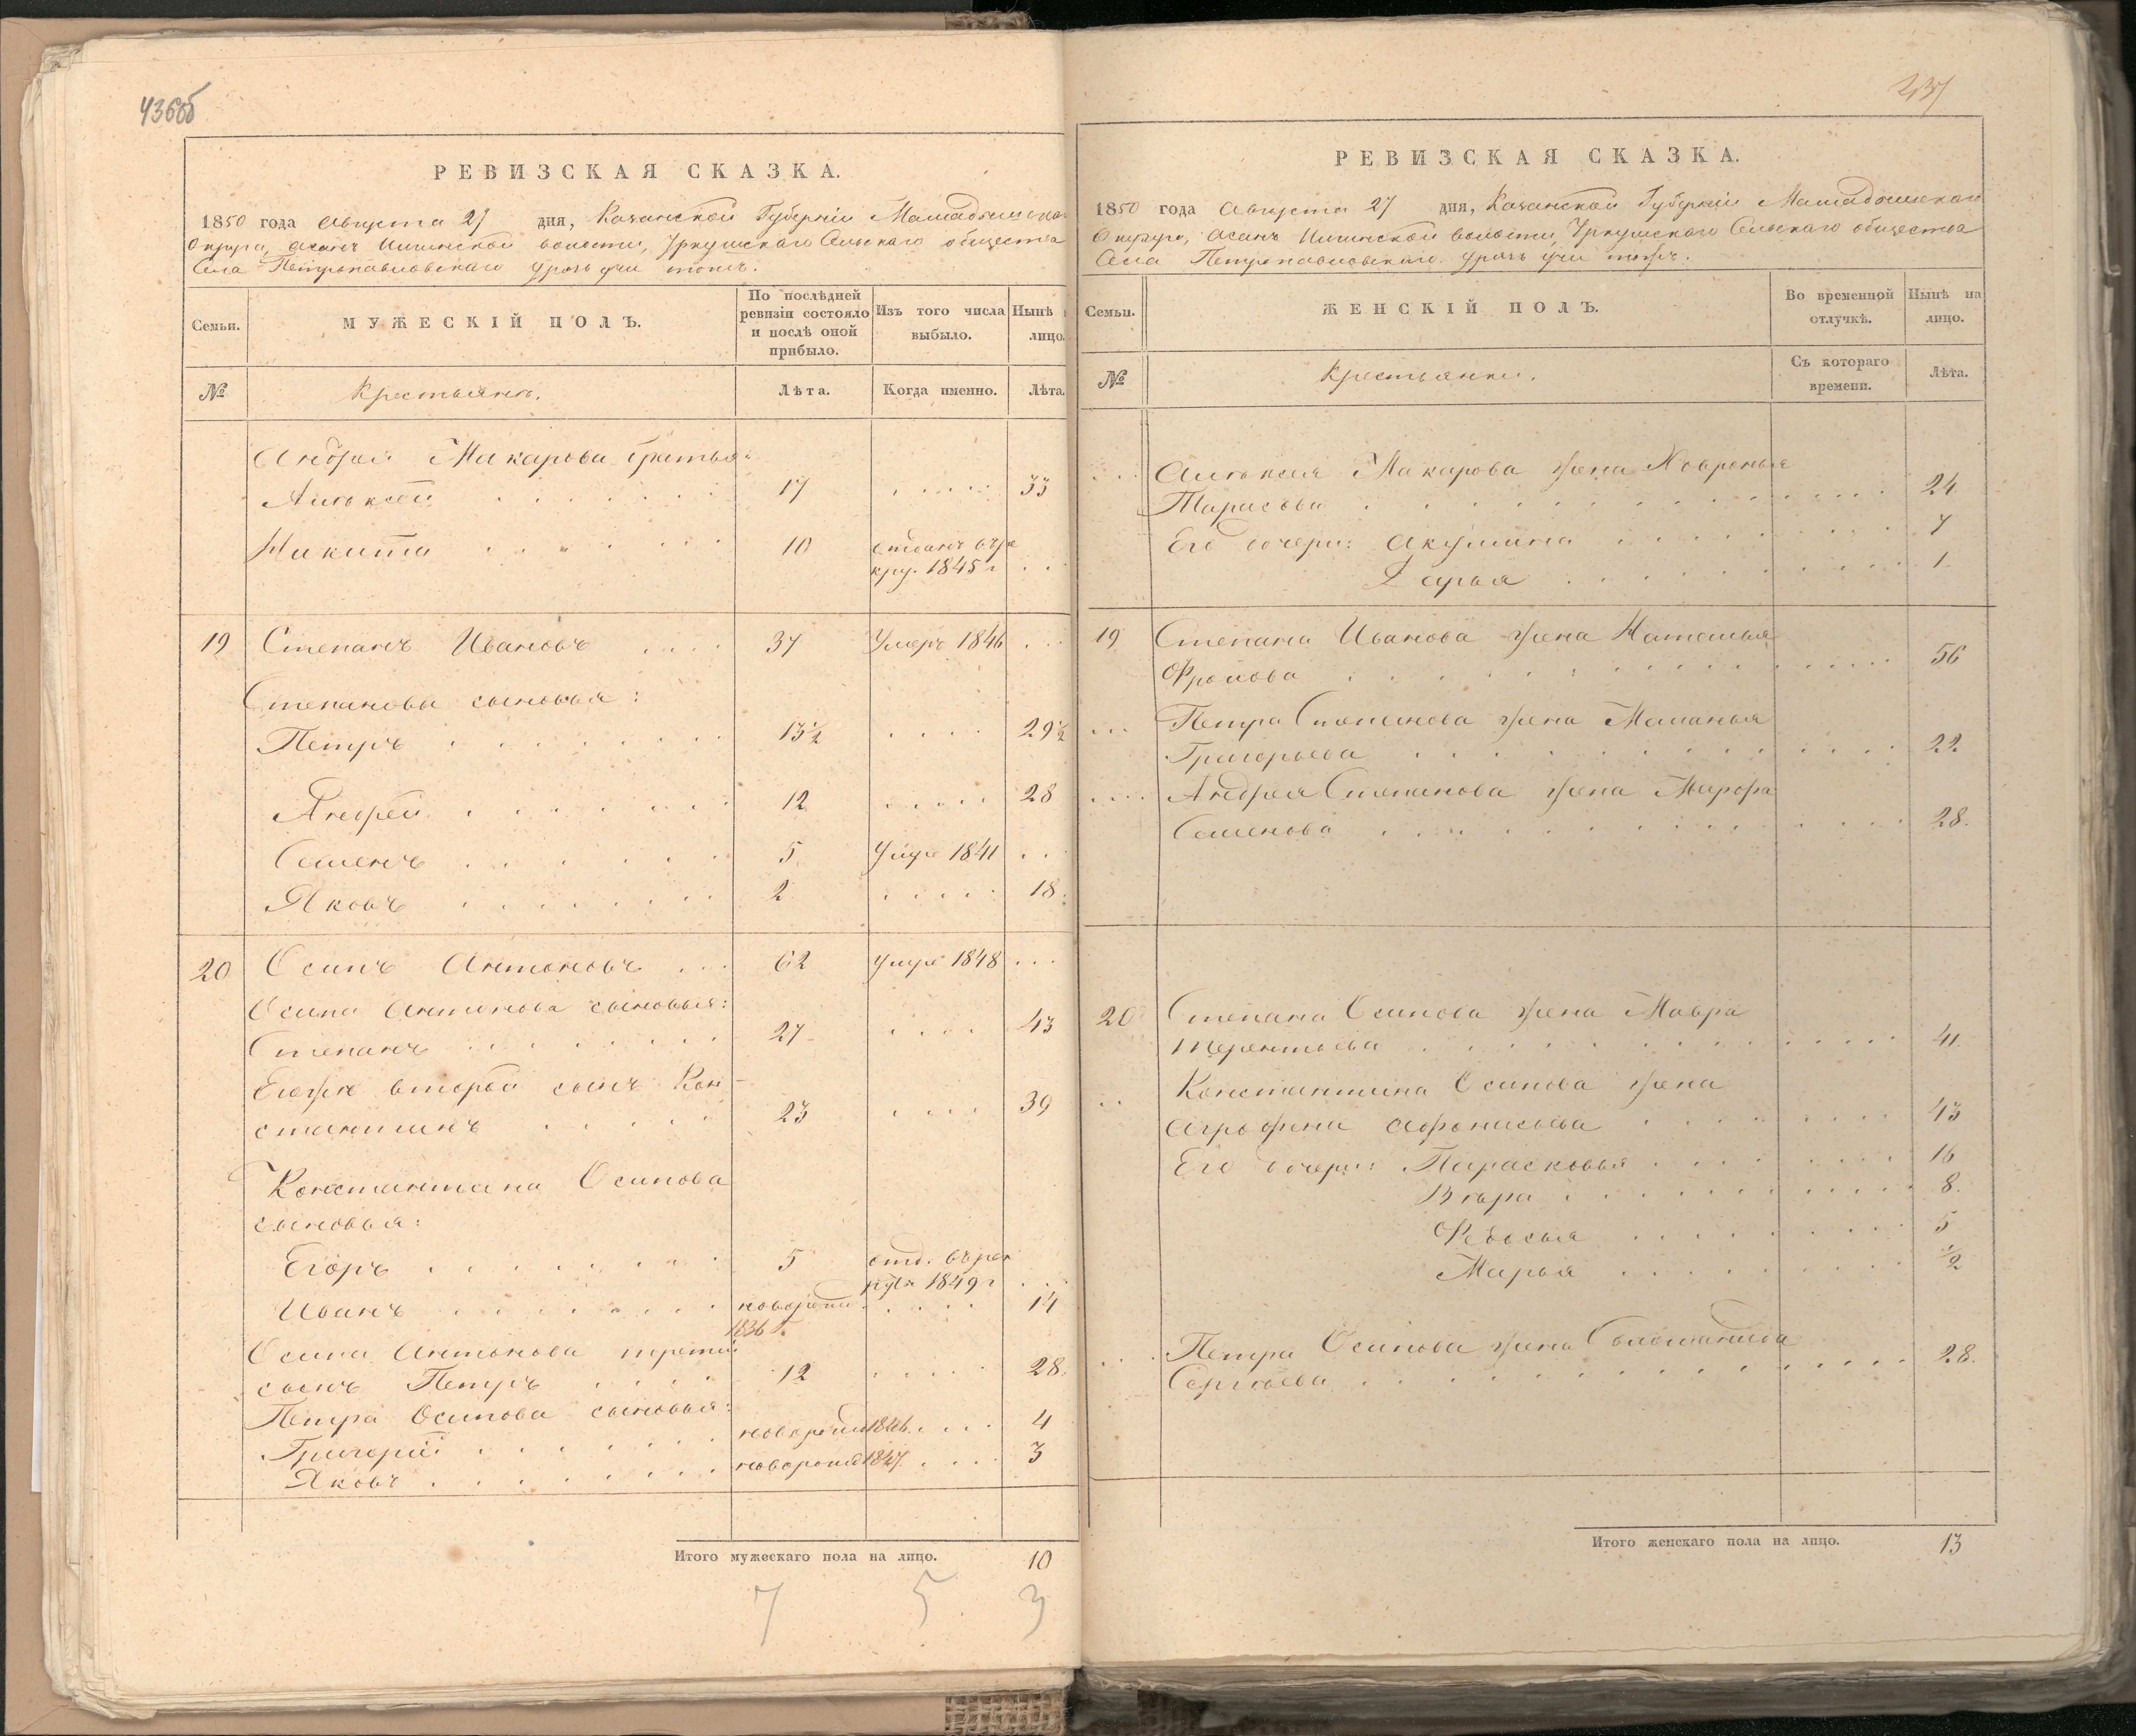 436об
РЕВИЗСКАЯ СКАЗКА.
1850 года Августа 27 дня, Казанской Губерніи Мамадышска
Округа, Асанъ Илгинской волости, Уркушскаго Сельскаго общества
Села Петропавловскаго
Семьи.
МУЖЕСКІЙ ПОЛЪ.
По послѣдней ревизіи состояло и послѣ оной прибыло.
Изъ того числа выбыло.
Нынѣ
лицо.
№
Крестьянъ.
Лѣта.
Когда именно.
Лѣта.
Андрея Макарова братья:
Алексей 17 33
Никита 10 отданъ въре
кру. 1845 г
19 Степанъ Ивановъ 37 Умеръ 1846
Степанова сыновья:
Петръ 13½ 29½
Андрей 12 28
Семенъ 5 Умре 1841
Яковъ 2 18
20 Осипъ Антоновъ 62 умре 1848
Осипа Антонова сыновья:
Степанъ 27 43
Егоже второй сынъ Кон-
стантинъ 23 39
Константина Осипова
сыновья:
Егоръ 5 отд: въре
кру 1849 г
Иванъ новорожд 14
1836 г.
Осипа Антонова третий
сынъ Петръ 12 28
Петра Осипова сыновья:
Григорій новорожд 1846 4
Яковъ новорожд 1847 3
Итого мужескаго пола на лицо. 10
7 5 3
237
РЕВИЗСКАЯ СКАЗКА.
1850 года Августа 27 дня, Казанской Губерніи Мамадышскаго
Округа, Асанъ Илгинской волости, Уркушскаго Сельскаго общества
Села Петропавловскаго
Семьи.
ЖЕНСКІЙ ПОЛЪ.
Во временной отлучкѣ.
Нынѣ на лицо.
№
Крестьянки.
Съ котораго времени.
Лѣта.
Алексея Макарова жена Ховронья
Тарасова 24
Его дочери: Акулина 7
Дарья 1
19 Степана Иванова жена Наталья
Фролова 56
Петра Степанова жена Маланья
Григорьева 22
Андрея Степанова жена Марфа
Семенова 28.
20 Степана Осипова жена Мавра
Терентьева 41
Константина Осипова жена
Аграфена Афонасьева 43
Его дочери: Парасковья 16
Вѣра 8
Федосья 5
Марья ½
Петра Осипова жена
Сергѣева 28.
Итого женскаго пола на лицо. 13